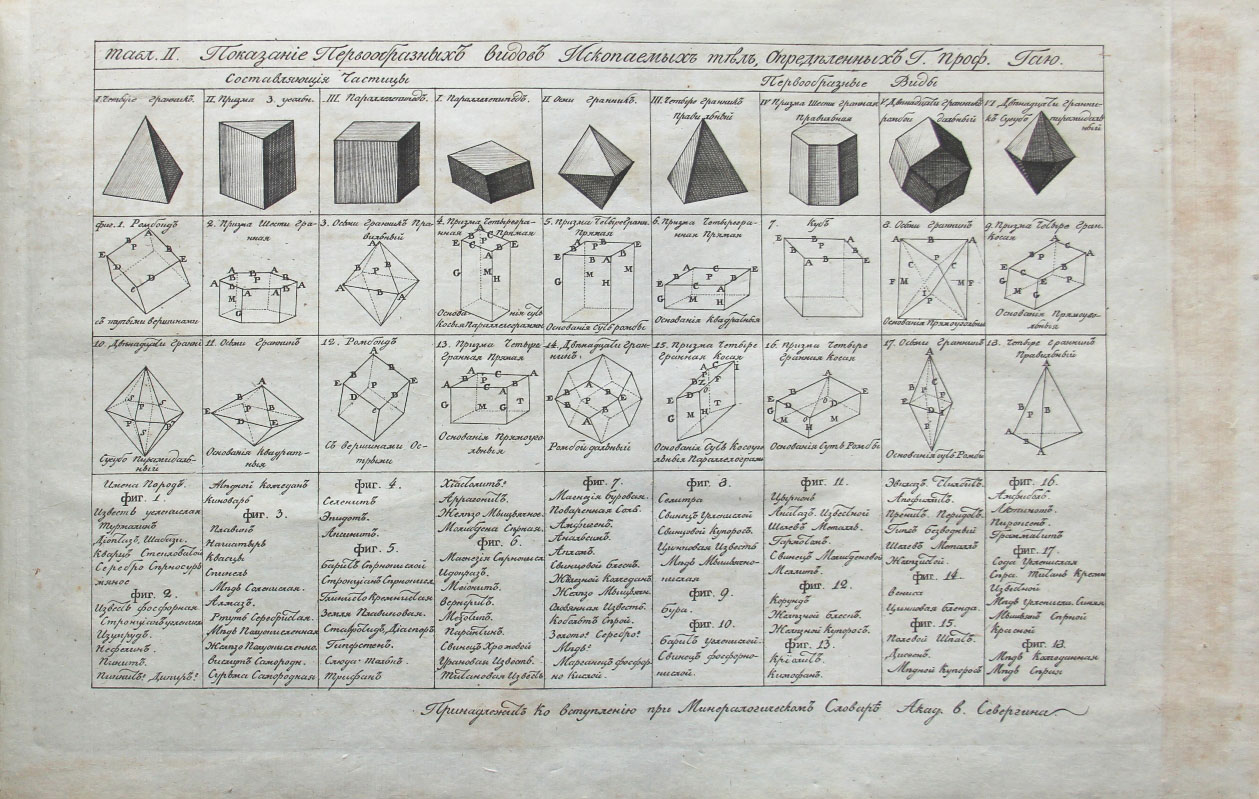 Табл. II. Показаніе Первообразныхъ видовъ Ископаемыхъ тѣлъ, Опредѣленныхъ Г. Проф. Гаю.
Составляющія Частицы
Первообразные Виды
I. Четыре гранникъ.
II. Призма 3. угольн.
III. Параллелепипедъ.
I. Параллелепипедъ.
II Осми гранникъ.
III. Четыре гранникъ
Правильный
IV Призма Шести гранная
Правильная
V, Двѣнадцати гранникъ
ромбоидальный
VI Двѣнадцати гранни-
къ Сугубо пирамидаль-
ный
Фиг. 1. Ромбоидъ
съ тупыми вершинами
2. Призма Шести гра-
нная
3. Осьми гранникъ Пра-
вильный
4. Призма Четырегра-
нная Прямая
Основанія суть
косыя Параллелограммы
5. Призма Четырегранн.
Прямая
Основанія Суть ромбы
6. Призма Четырегра-
нная Прямая
Основанія Квадратныя
7. Кубъ
8. Осьми гранникъ
Основанія Прямоугольныя
9. Призма Четыре гран.
Косая
Основанія Прямоуго-
льныя
10. Двѣнадцати гранный
Сугубо Пирамидаль-
ный
11. Осьми гранникъ
Основанія Квадрат-
ныя
12. Ромбоидъ
Съ вершинами Ос-
трыми
13. Призма Четыре
гранная Прямая
Основанія Прямоуго-
льныя
14. Двѣнадцати гран-
никъ.
Ромбоидальный
15. Призма Четыре
гранная Косая
Основанія Суть Косоуго-
льныя Параллелограм.
16. Призма Четыре
гранная Косая
Основанія Суть Ромбы
17. Осьми гранникъ
Основанія суть Ромбы
18. Четыре гранникъ
Правильный
Имена Породъ.
фиг. 1.
Известь углекислая
Турмалинъ.
Діоптазъ, Шабази.
Кварцъ Стекловатой
Серебро Сѣрносурь-
мяное
фиг. 2.
Известь фосфорная
Стронціанъ углекислый
Изумрудъ.
Нефелинъ.
Пинитъ.
Пикнитъ? Дипиръ?
Мѣдной Колчеданъ
Киноварь
фиг. 3.
Плавикъ
Нашатырь
Квасцы
Спинель
Мѣдь Солекислая.
Алмазъ.
Ртуть Серебристая.
Мѣдь Полуокисленная
Желѣзо Полуокисленно.
Висмутъ Самородн.
Сурьма Самородная
фиг. 4.
Селенитъ.
Эпидотъ.
Аксинитъ.
фиг. 5.
Баритъ Сѣрнокислой
Стронціанъ Сѣрнокисл.
Глинисто Кремнистая
Земля Плавиковая.
Ставролидъ, Діаспоръ.
Гиперстенъ.
Слюда. Талькъ.
Трифанъ
Хіастолитъ?
Аррагонитъ.
Желѣзо Мышьячное.
Молибдена Сѣрная.
фиг. 6.
Магнезія Сѣрнокисл.
Идокразъ.
Мейонитъ.
Вернеритъ.
Мезотипъ.
Парантинъ.
Свинецъ Хромовой
Урановая Известь.
Титановая Известь
фиг. 7.
Магнезія Буровая.
Поваренная Соль.
Амфигенъ.
Анальсимъ.
Апломъ.
Свинцовой блескъ.
Желѣзной Колчеданъ
Желѣзо Мышьячн.
Оловянная Известь.
Кобольтъ Сѣрой.
Золото? Серебро?
Мѣдь?
Марганецъ фосфор-
но Кислой.
фиг. 8.
Селитра
Свинецъ Углекислой
Свинцовой Купоросъ.
Цинковая Известь
Мѣдь Мышьяко-
кислая
фиг. 9.
Бура.
фиг. 10.
Баритъ углекислой.
Свинецъ фосфорно-
кислой.
фиг. 11.
Цирконъ
Анатазъ. Известной
Шалевъ Металлъ.
Гармотомъ.
Свинецъ Молибденовой
Меллитъ.
фиг. 12.
Корундъ
Желѣзной блескъ.
Желѣзной Купоросъ.
фиг. 13.
Кріолитъ.
Кимофанъ.
Эвклазъ.
Апофиллитъ.
Пренитъ. Перидотъ.
Гипсъ Безводный
Шалевъ Металлъ
Желѣзистой.
фиг. 14.
Вениса
Цинковая бленда.
фиг. 15.
Полевой Шпатъ.
Дистенъ.
Мѣдной Купоросъ
фиг. 16.
Амфиболъ.
Актинотъ.
Пироксенъ.
Грамматитъ
фиг. 17.
Сода Углекислая
Сѣра. Титанъ Кремне
Известной
Мѣдь Углекисла. Синяя
Мышьякъ Сѣрной
Красной
фиг. 18.
Мѣдь Колчеданная
Мѣдь Сѣрая
Принадлежитъ ко вступленію при Минералогическомъ Словарѣ Акад. В. Севергина.